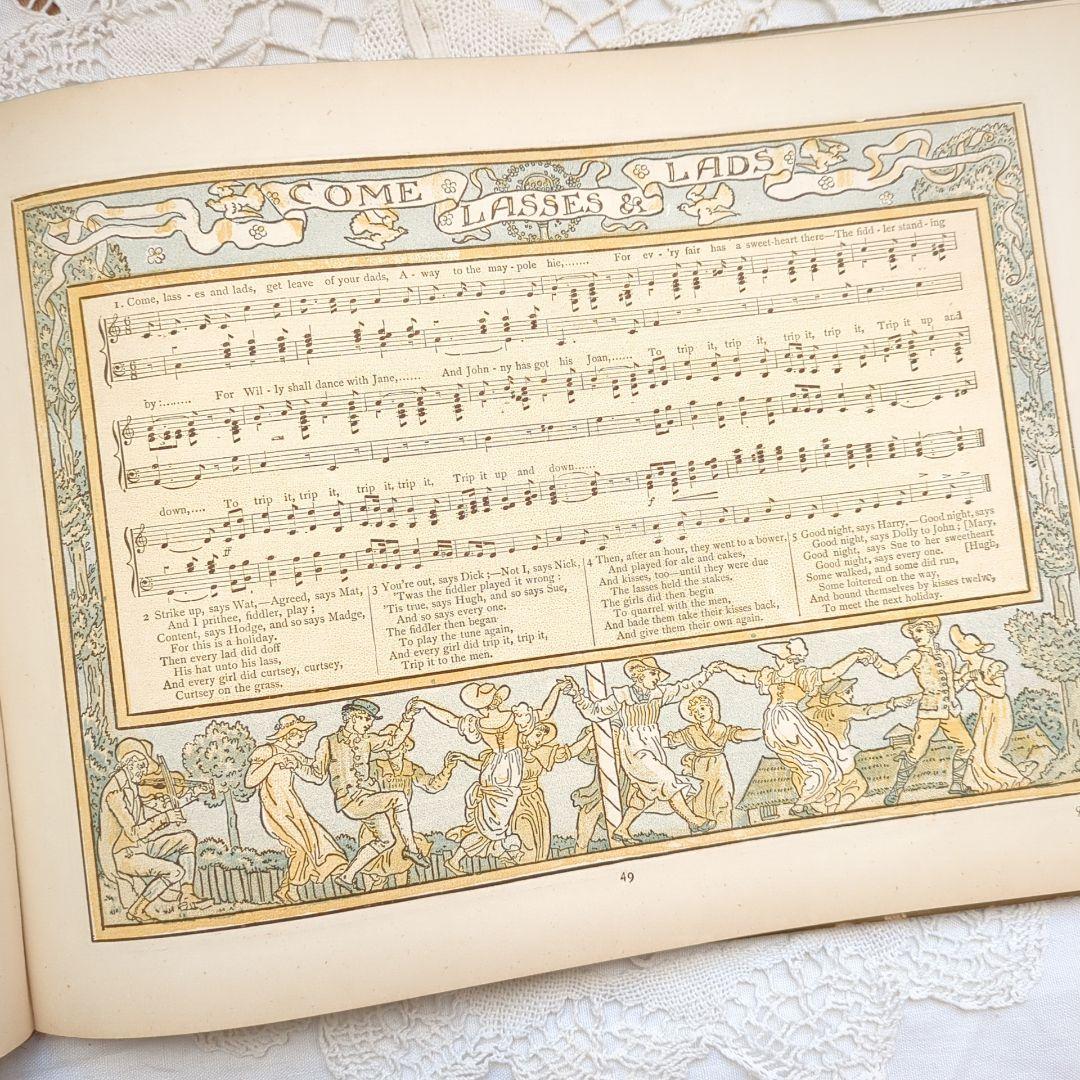 COME LASSES & LADS
1. Come, lass - es and lads, get leave of your dads, A - way to the may - pole hie,....... For ev - 'ry fair has a sweet-heart there—The fidd - ler stand - ing
by:........ For Wil - ly shall dance with Jane,...... And John - ny has got his Joan,...... To trip it, trip it, trip it, trip it, Trip it up and
down,.... To trip it, trip it, trip it, trip it, Trip it up and down......
ff
f
2 Strike up, says Wat,—Agreed, says Mat,
And I prithee, fiddler, play;
Content, says Hodge, and so says Madge,
For this is a holiday.
Then every lad did doff
His hat unto his lass,
And every girl did curtsey, curtsey,
Curtsey on the grass.
3 You're out, says Dick;—Not I, says Nick,
'Twas the fiddler played it wrong:
'Tis true, says Hugh, and so says Sue,
And so says every one.
The fiddler then began
To play the tune again,
And every girl did trip it, trip it,
Trip it to the men.
4 Then, after an hour, they went to a bower,
And played for ale and cakes,
And kisses, too—until they were due
The lasses held the stakes.
The girls did then begin
To quarrel with the men,
And bade them take their kisses back,
And give them their own again.
5 Good night, says Harry,—Good night, says
Good night, says Dolly to John; [Mary,
Good night, says Sue to her sweetheart
Good night, says every one. [Hugh,
Some walked, and some did run,
Some loitered on the way,
And bound themselves by kisses twelve,
To meet the next holiday.
49